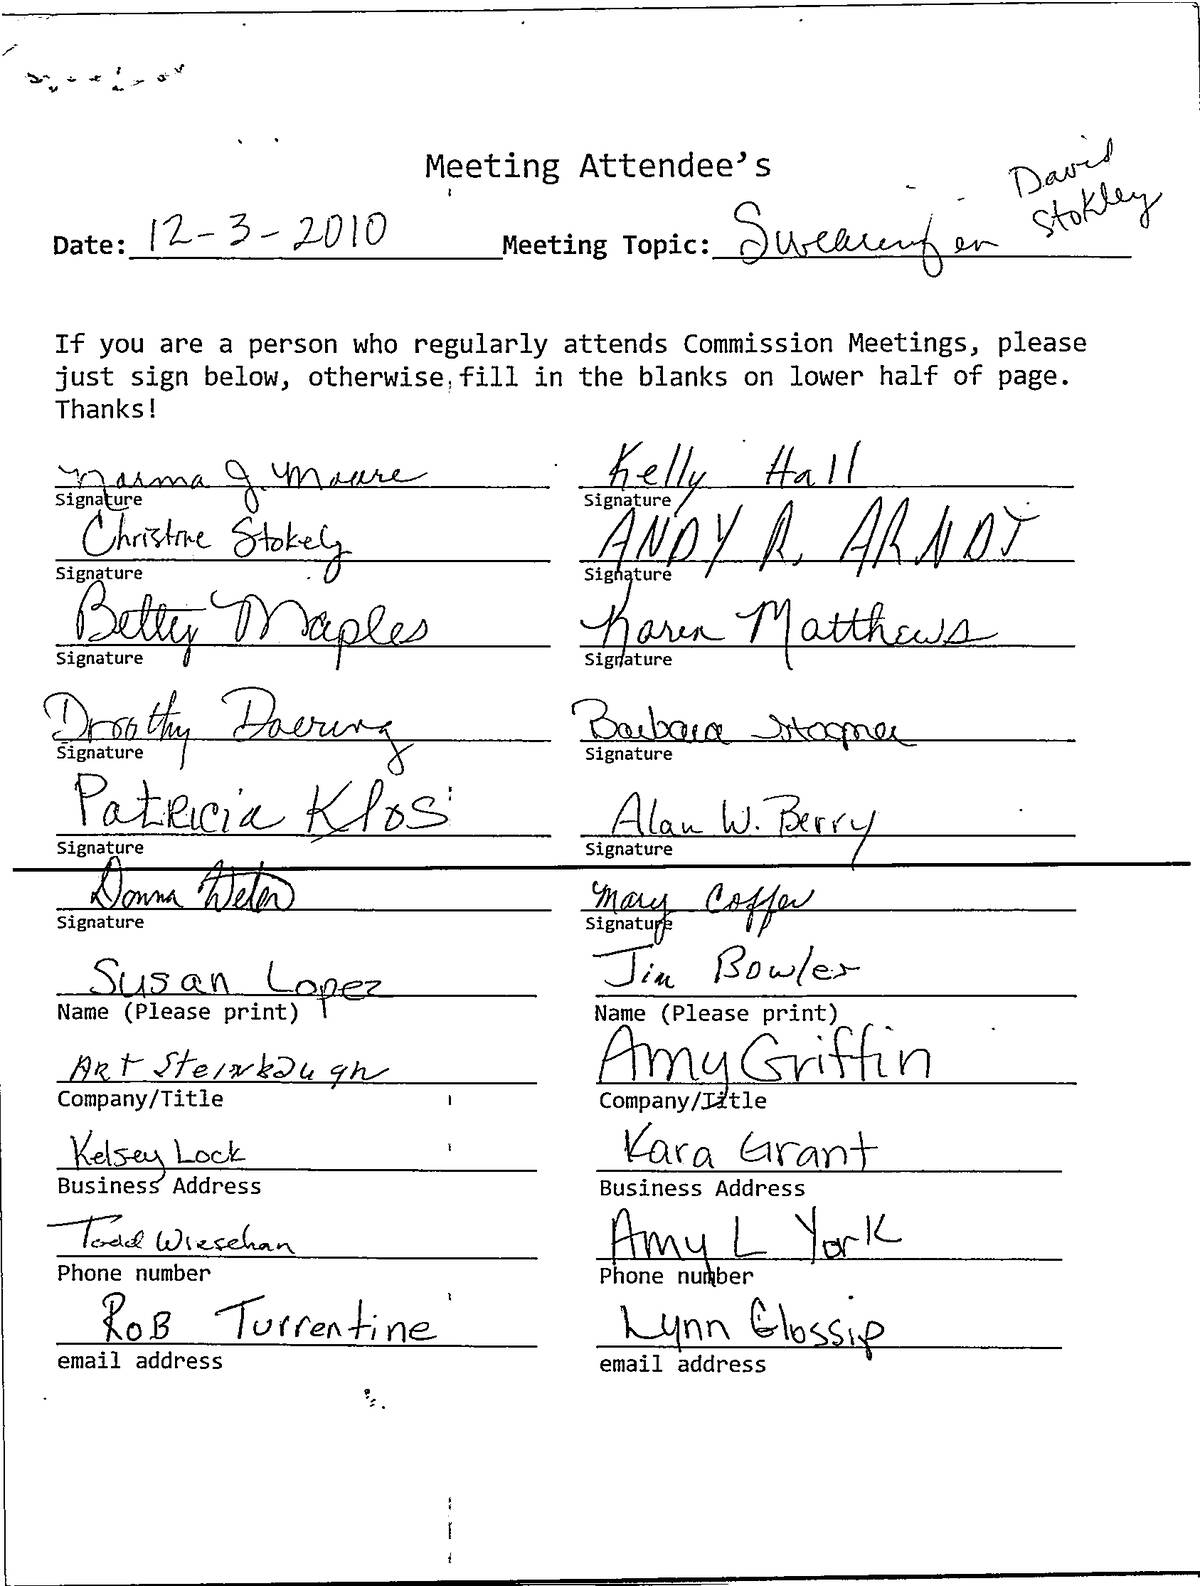 Meeting Attendee's
David
Stokley
Date: 12-3-2010 Meeting Topic:
If you are a person who regularly attends Commission Meetings, please
just sign below, otherwise fill in the blanks on lower half of page.
Thanks!
Norma J. Moore Kelly Hall
Signature Signature
Christine Stokely ANDY R. ARNDT
Signature Signature
Betty Maples Karen Matthews
Signature Signature
Dorothy Doering Barbara
Signature Signature
Patricia Klos Alan W. Berry
Signature Signature
Donna Mary Coffer
Signature Signature
Susan Lopez Jim Bowles
Name (Please print) Name (Please print)
Art Steinbaugh Amy Griffin
Company/Title Company/Title
Kelsey Lock Kara Grant
Business Address Business Address
Todd Wiesehan Amy L York
Phone number Phone number
Rob Turrentine Lynn Glossip
email address email address